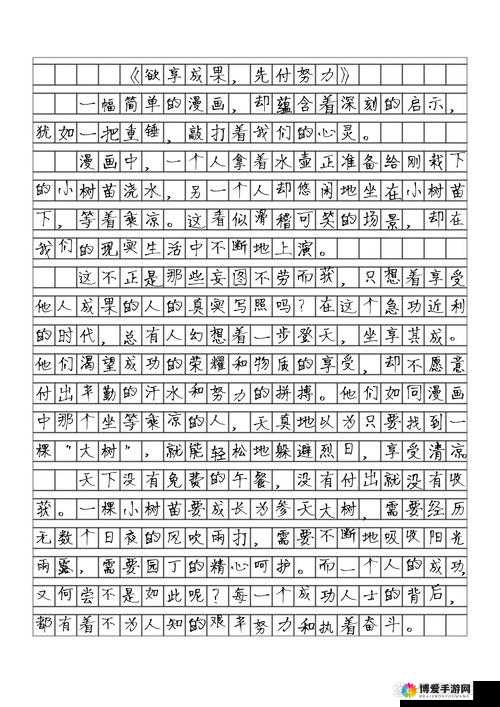 《欲享成果，先付努力》
一幅简单的漫画，却蕴含着深刻的启示，
犹如一把重锤，敲打着我们的心灵。
漫画中，一个人拿着水壶正准备给刚栽下
的小树苗浇水，另一个人却悠闲地坐在小树苗
下，等着乘凉。这看似滑稽可笑的场景，却在
我们的现实生活中不断地上演。
这不正是那些妄图不劳而获，只想着享受
他人成果的人的真实写照吗？在这个急功近利
的时代，总有人幻想着一步登天，坐享其成。
他们渴望成功的荣耀和物质的享受，却不愿意
付出辛勤的汗水和努力的拼搏。他们如同漫画
中那个坐等乘凉的人，天真地以为只要找到一
棵“大树”，就能轻松地躲避烈日，享受清凉
天下没有免费的午餐，没有付出就没有收
获。一棵小树苗要成长为参天大树，需要经历
无数个日夜的风吹雨打，需要不断地吸收阳光
雨露，需要园丁的精心呵护。而一个人的成功，
又何尝不是如此呢？每一个成功人士的背后，
都有着不为人知的艰辛努力和执着奋斗。
博爱手游网